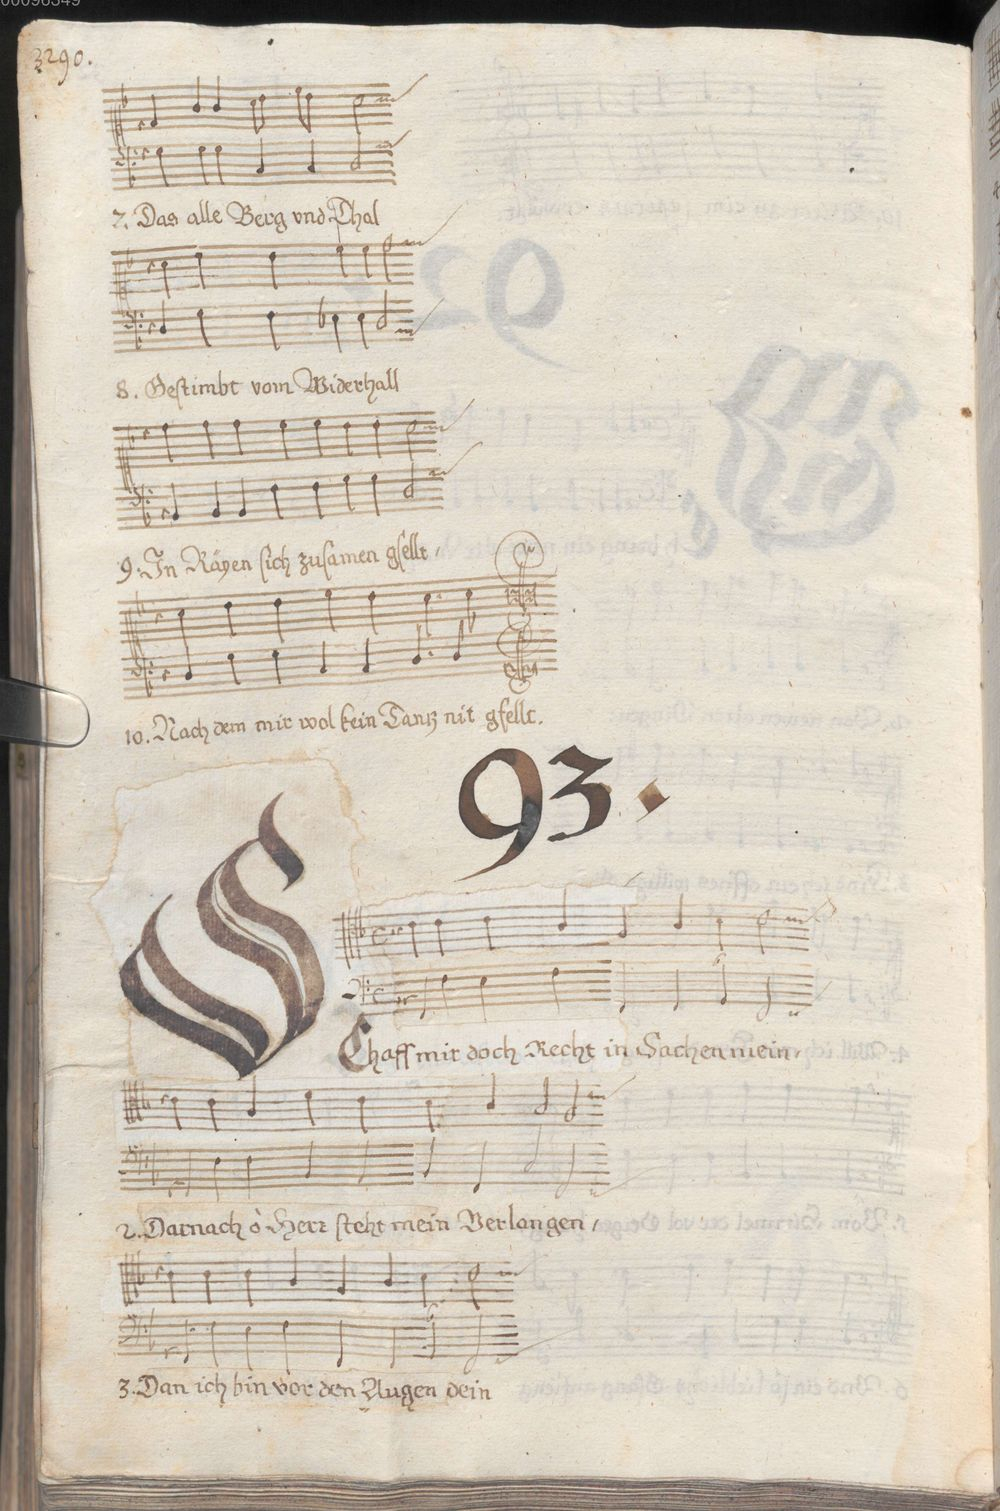 3290.
7. Das alle Berg vnd Thal
8. Gestimbt vom Widerhall
9. In Räyen sich zusamen gsellt,
10. Nach dem mir wol kein Tantz nit gfellt.
93.
SChaff mir doch Recht in Sachen mein,
2. Darnach ò Herr steht mein Verlangen,
3. Dan ich bin vor den Augen dein